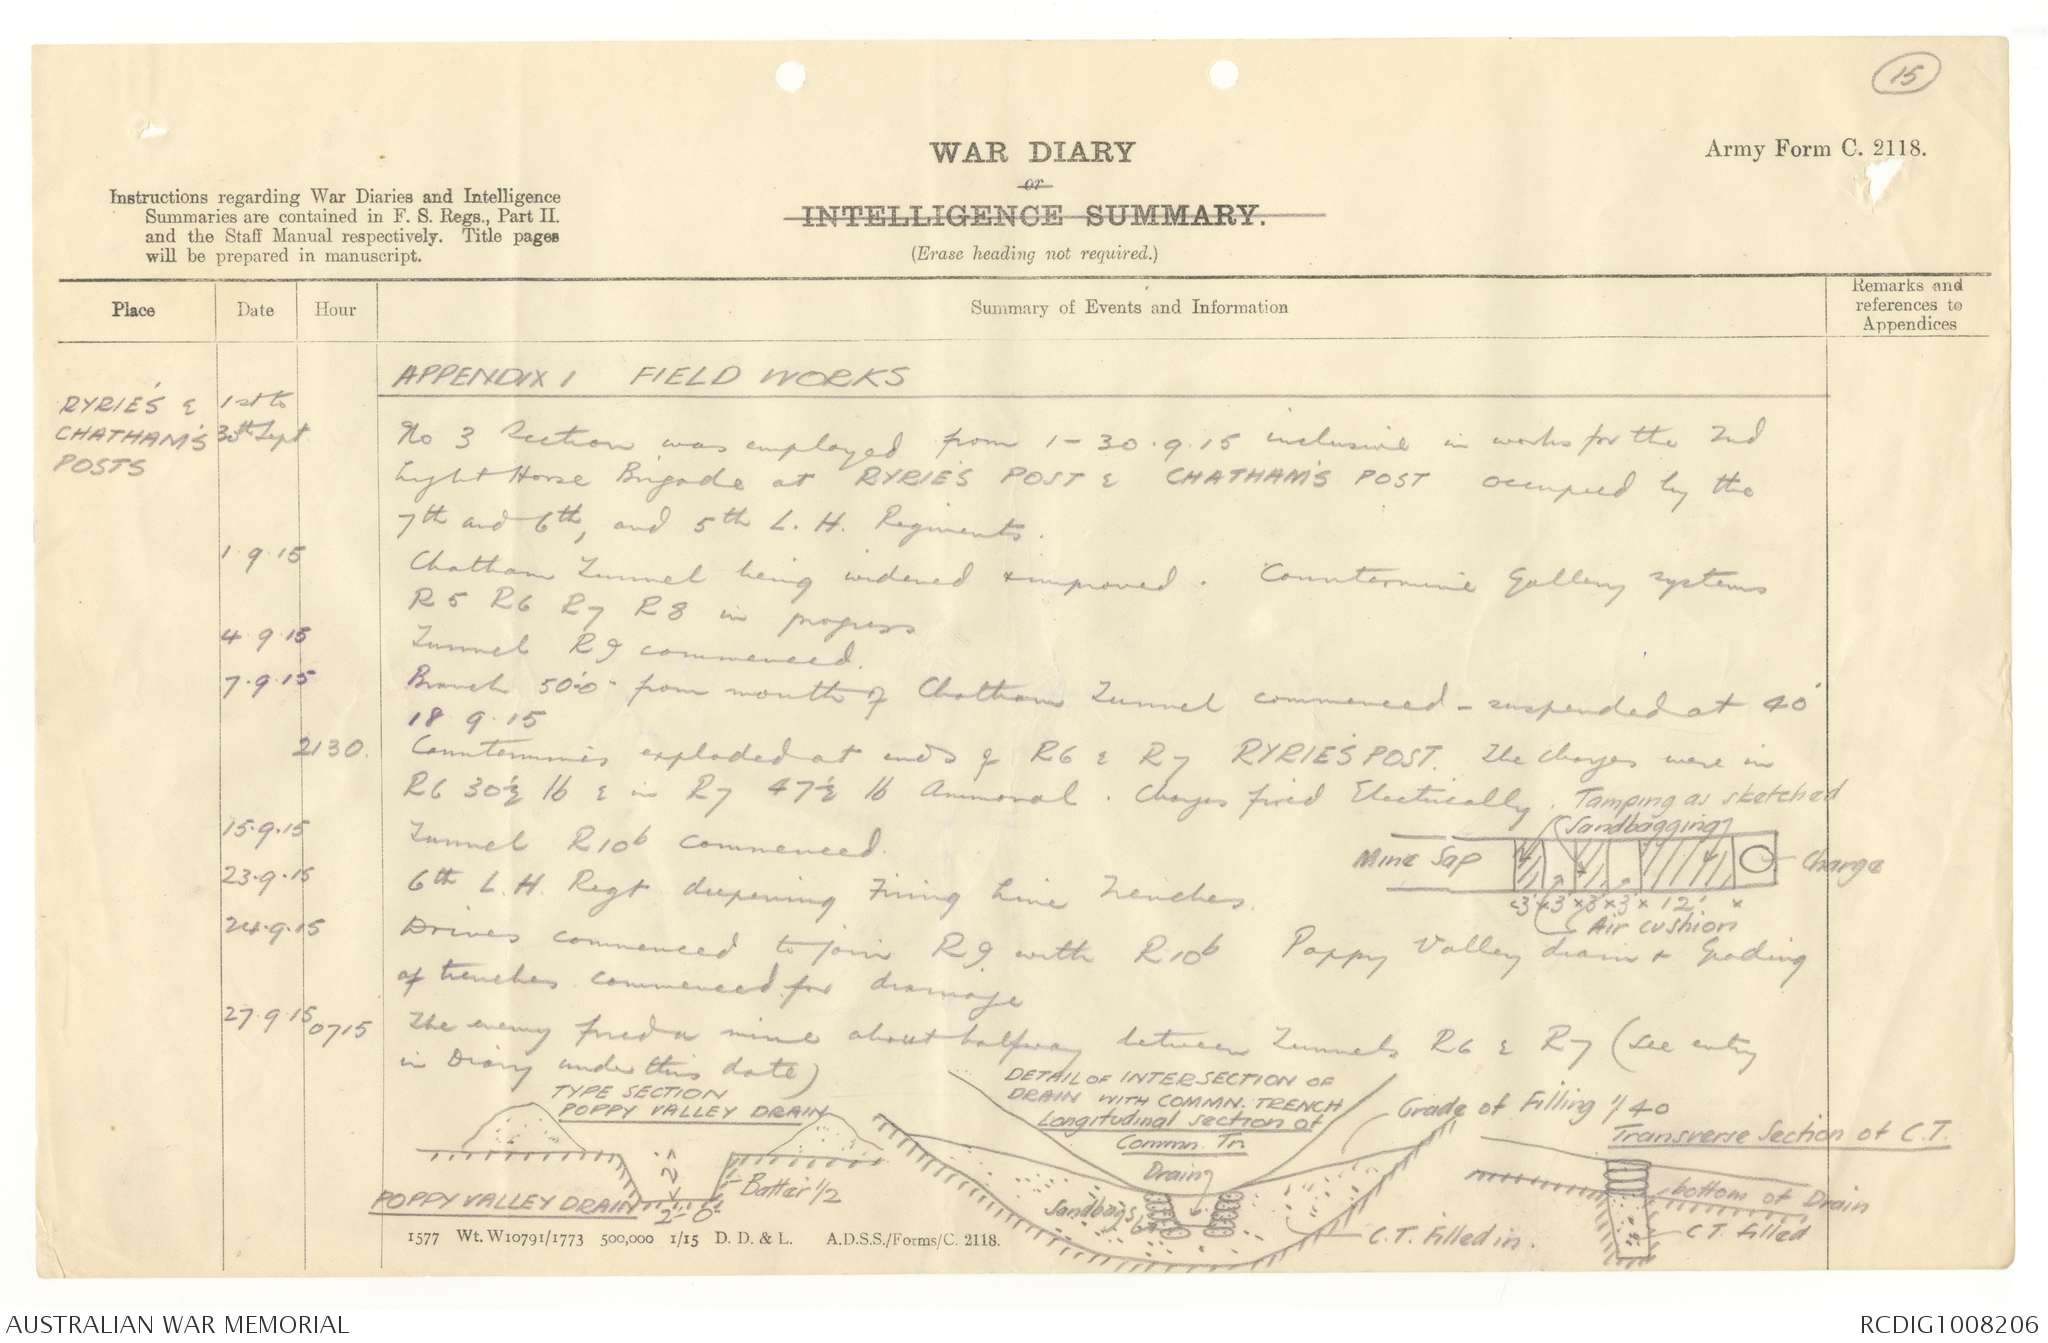 15
WAR DIARY
or
INTELLIGENCE SUMMARY.
(Erase heading not required.)
Army Form C. 2118.
Instructions regarding War Diaries and Intelligence
Summaries are contained in F. S. Regs., Part II.
and the Staff Manual respectively. Title pages
will be prepared in manuscript.
Place Date Hour Summary of Events and Information Remarks and references to Appendices
APPENDIX 1 FIELD WORKS
RYRIE'S & CHATHAM'S POSTS
1st to 30th Sept
No 3 Section was employed from 1-30.9.15 inclusive in works for the 2nd
Light Horse Brigade at RYRIE'S POST & CHATHAM'S POST occupied by the
7th and 6th, and 5th L. H. Regiments.
1.9.15 Chatham Tunnel being widened & improved. Countermine Gallery systems
R5 R6 R7 R8 in progress
4.9.15 Tunnel R9 commenced.
7.9.15 Branch 50'0" from mouth of Chatham Tunnel commenced - suspended at 40'
18 9.15
2130. Countermines exploded at ends of R6 & R7 RYRIE'S POST. The charges were in
R6 30½ lb & in R7 47½ lb Ammonal. Charges fired Electrically. Tamping as sketched
15.9.15 Tunnel R10b commenced.
Sandbagging
Mine Sap
Charge
3' 3' 3' 3' 12'
Air cushion
23.9.15 6th L.H. Regt deepening Firing Line Trenches.
24.9.15 Drives commenced to join R9 with R10b Poppy Valley drain & Grading
of trenches commenced for drainage
27.9.15 0715 The enemy fired a mine about halfway between Tunnels R6 & R7 (see entry
in Diary under this date)
TYPE SECTION
POPPY VALLEY DRAIN
2'
Batter ½
POPPY VALLEY DRAIN 2'-0"
DETAIL OF INTERSECTION OF
DRAIN WITH COMMN. TRENCH
Longitudinal section of
Commn. Tr.
Drain
Sandbags
Grade of Filling 1/40
C.T. Filled in.
Transverse Section of C.T.
bottom of Drain
C.T. filled
1577 Wt. W10791/1773 500,000 1/15 D. D. & L. A.D.S.S./Forms/C. 2118.
AUSTRALIAN WAR MEMORIAL
RCDIG1008206